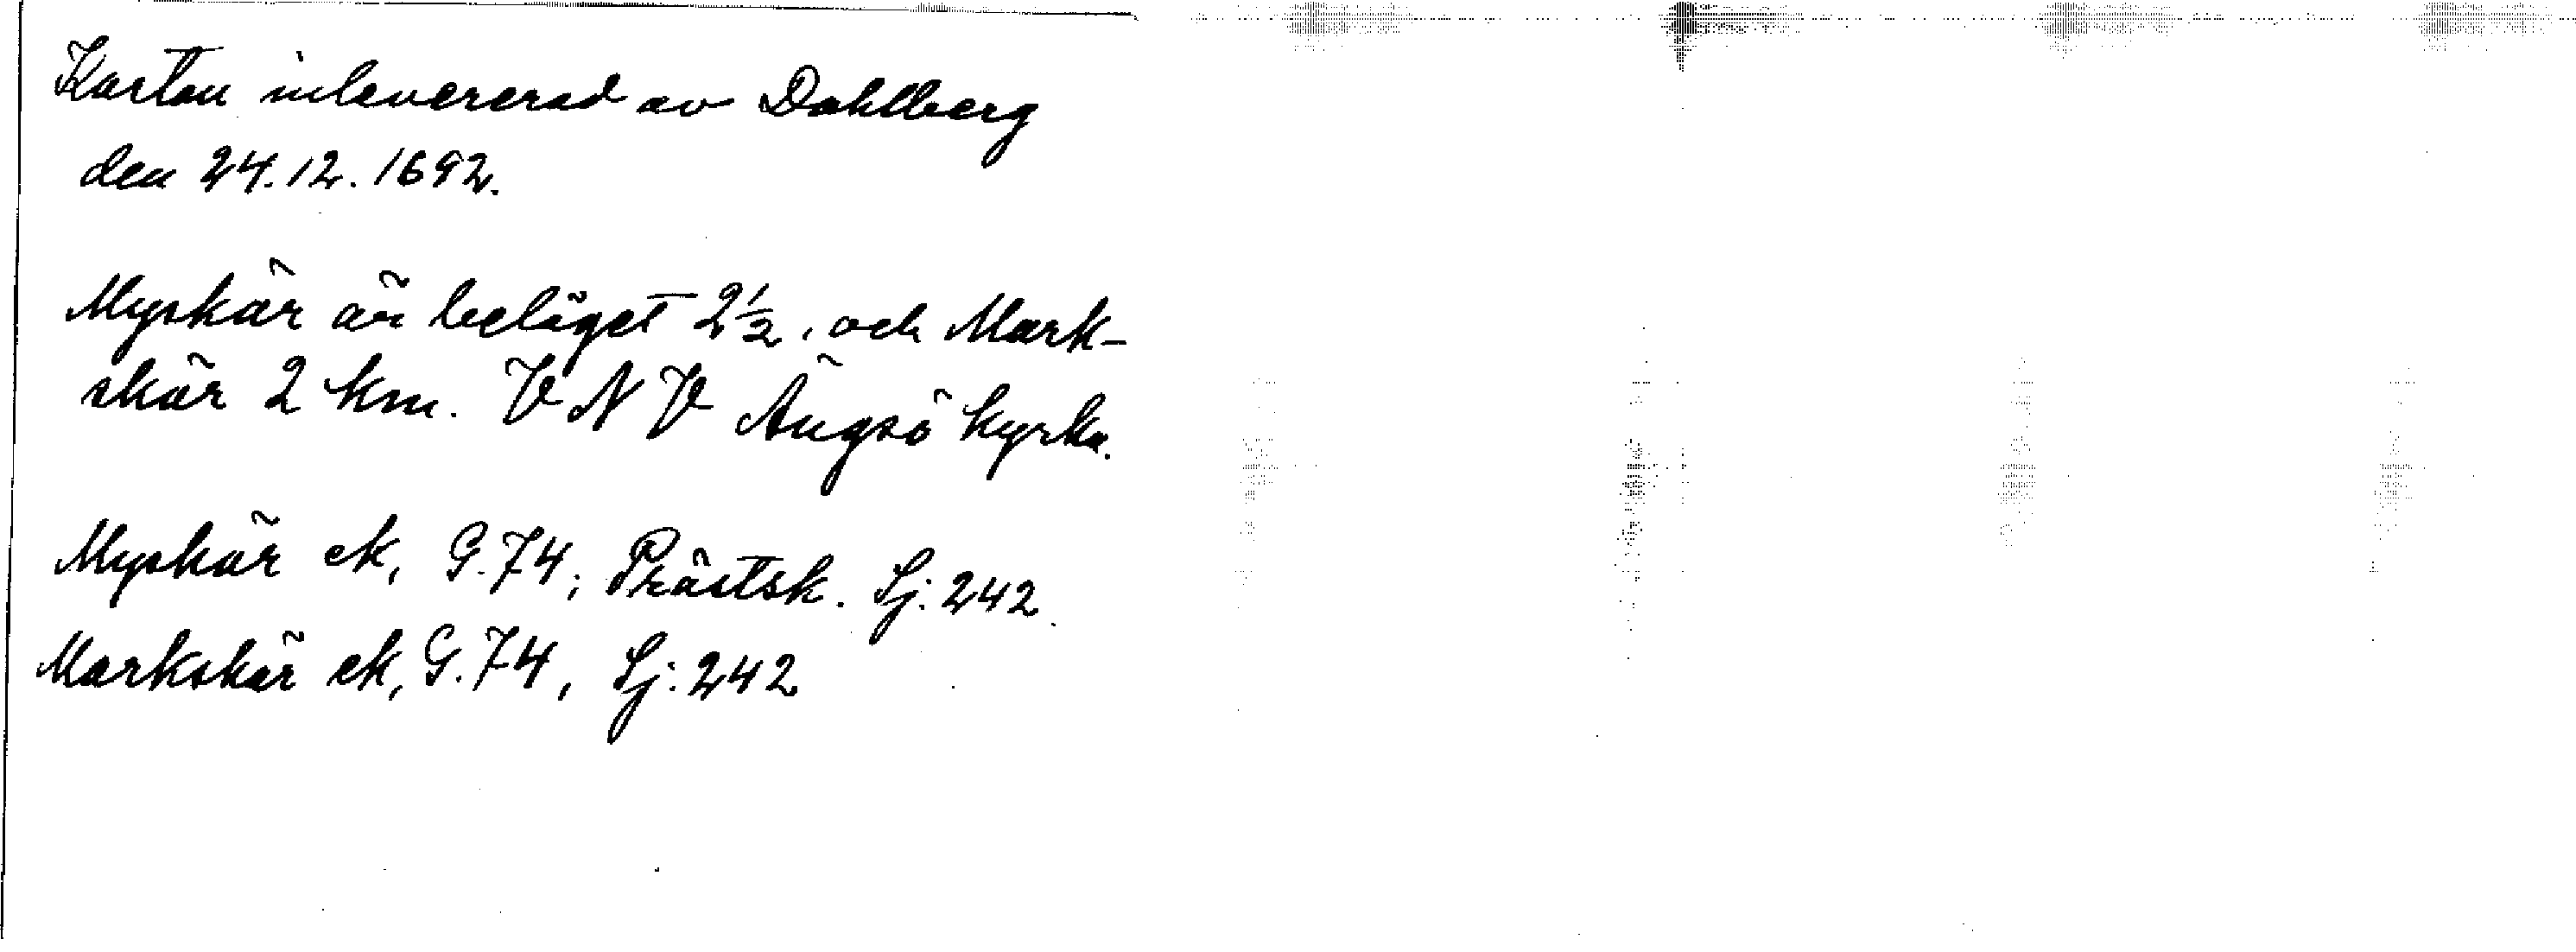 Kartan inlevererad av Dahlberg
den 24.12.1692.
Myskär är beläget 2½, och Mark-
skär 2 km. V N V Ängsö kyrka.
Myskär ek, G.74, Prästsk. Sj:242.
Markskär ek, G.74, Sj:242